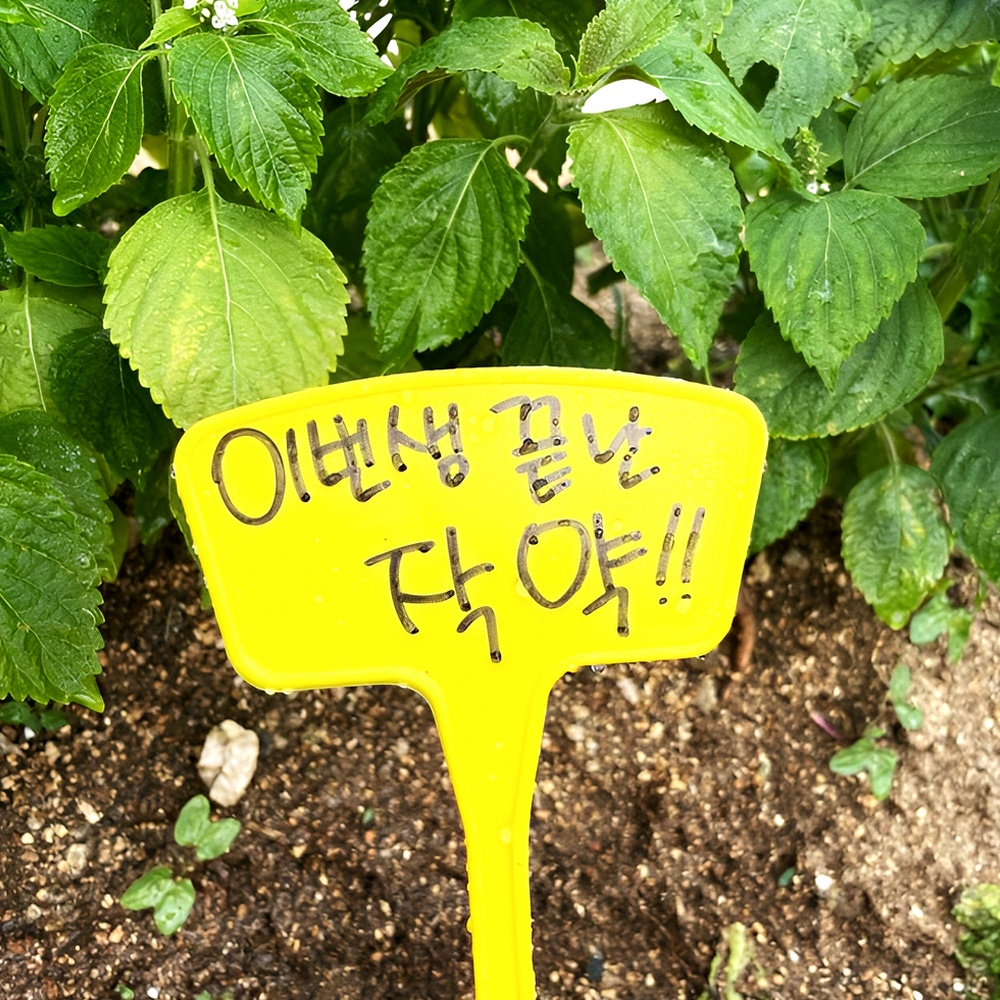 이번생 끝난
작약!!